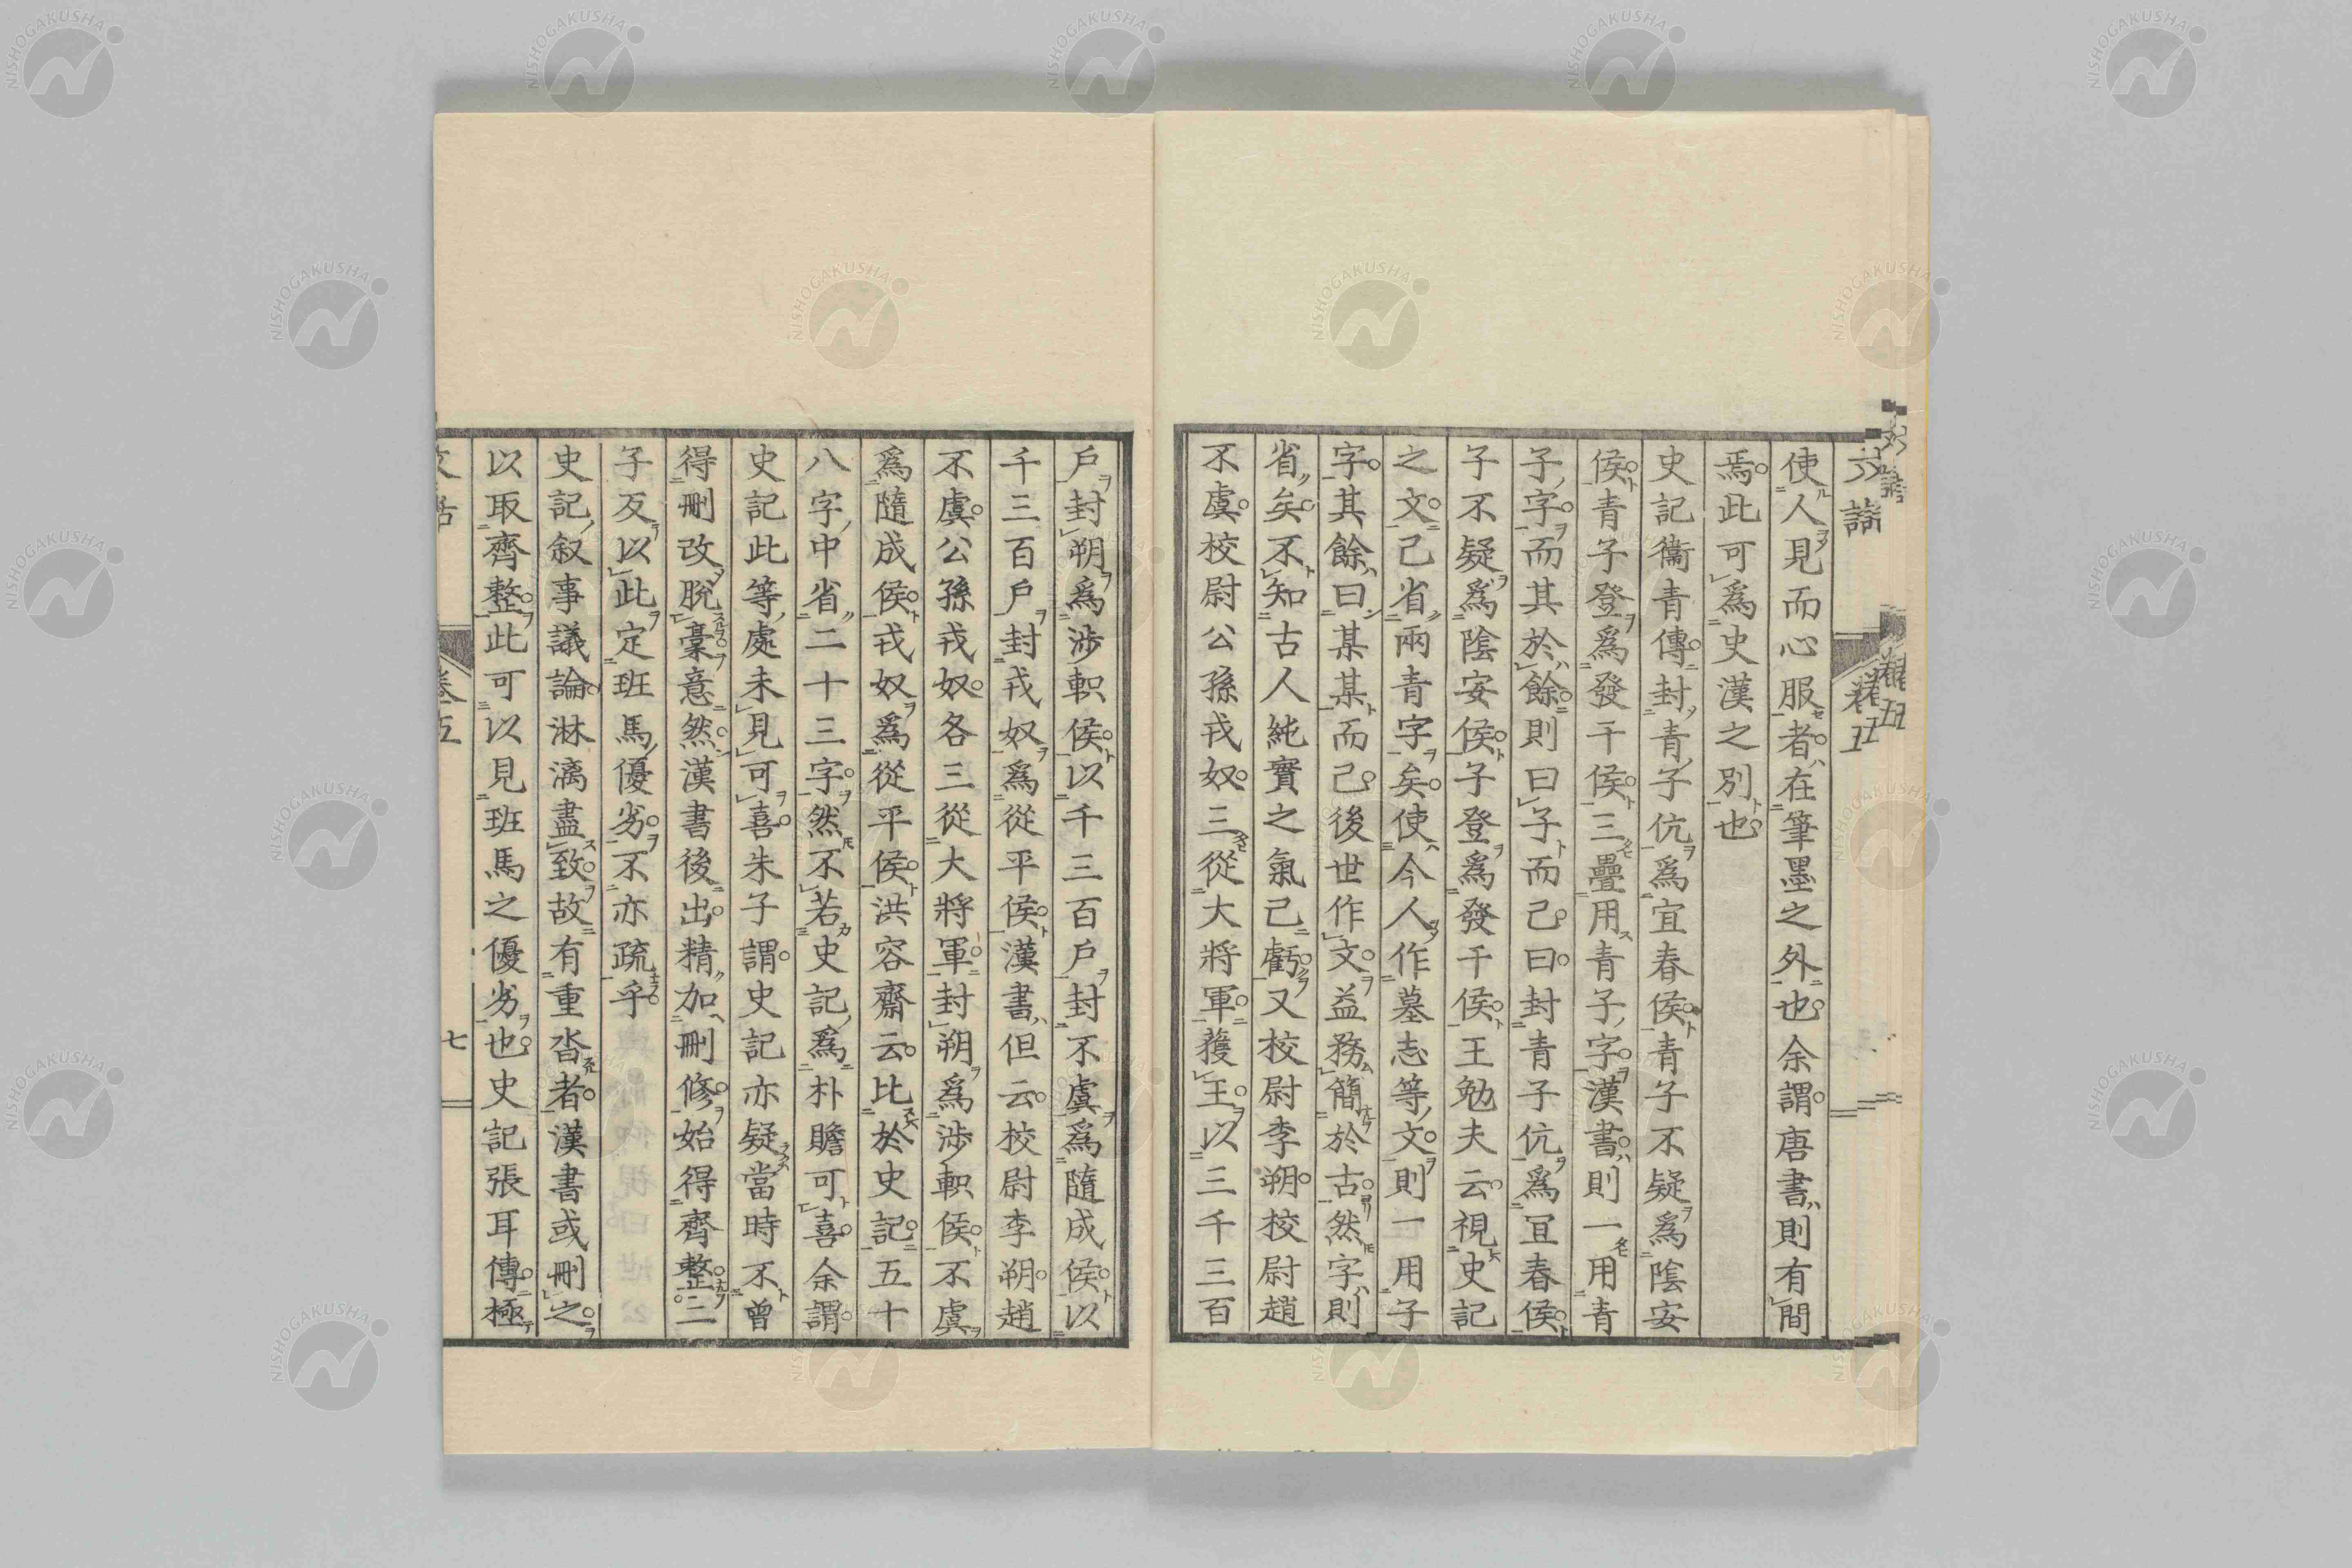 使人見而心服者。在筆墨之外也。余謂。唐書則有間
焉。此可爲史漢之別也。
史記衞青傳。封青子伉爲宜春侯。青子不疑爲陰安
侯。青子登爲發干侯。三疊用青子字。漢書。則一用青
子字。而其於餘。則曰子而已。曰。封青子伉爲宜春侯。
子不疑爲陰安侯。子登爲發千侯。王勉夫云。視史記
之文。已省兩青字矣。使今人作墓志等文。則一用子
字。其餘曰某某而已。後世作文。益務簡於古。然字則
省矣。不知古人純實之氣已虧。又校尉李朔。校尉趙
不虞。校尉公孫戎奴。三從大將軍。獲王。以三千三百
戶封朔爲涉軹侯。以千三百戶封不虞爲隨成侯。以
千三百戶封戎奴爲從平侯。漢書。但云。校尉李朔。趙
不虞。公孫戎奴。各三從大將軍。封朔爲涉軹侯。不虞
爲隨成侯。戎奴爲從平侯。洪容齋云。比於史記。五十
八字中省二十三字。然不若史記爲朴贍可喜。余謂。
史記此等處未見可喜。朱子謂。史記亦疑當時不曾
得刪改脫稾意。然漢書後出。精加刪修。始得齊整。二
子反以此定班馬優劣。不亦疏乎。
史記叙事議論。淋漓盡致。故有重沓者。漢書或刪之。
以取齊整。此可以見班馬之優劣也。史記張耳傳。極
卷五
七